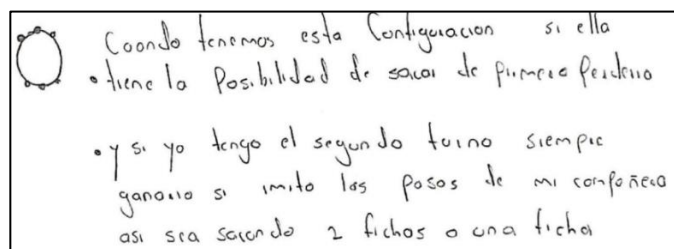 Coondo tenemos esta Configuracion si ella
• tiene la Posibilidad de sacar de primera Perderia
• y si yo tengo el segundo turno siempre
ganaria si imito los pasos de mi compañera
asi sea sacando 2 fichas o una ficha